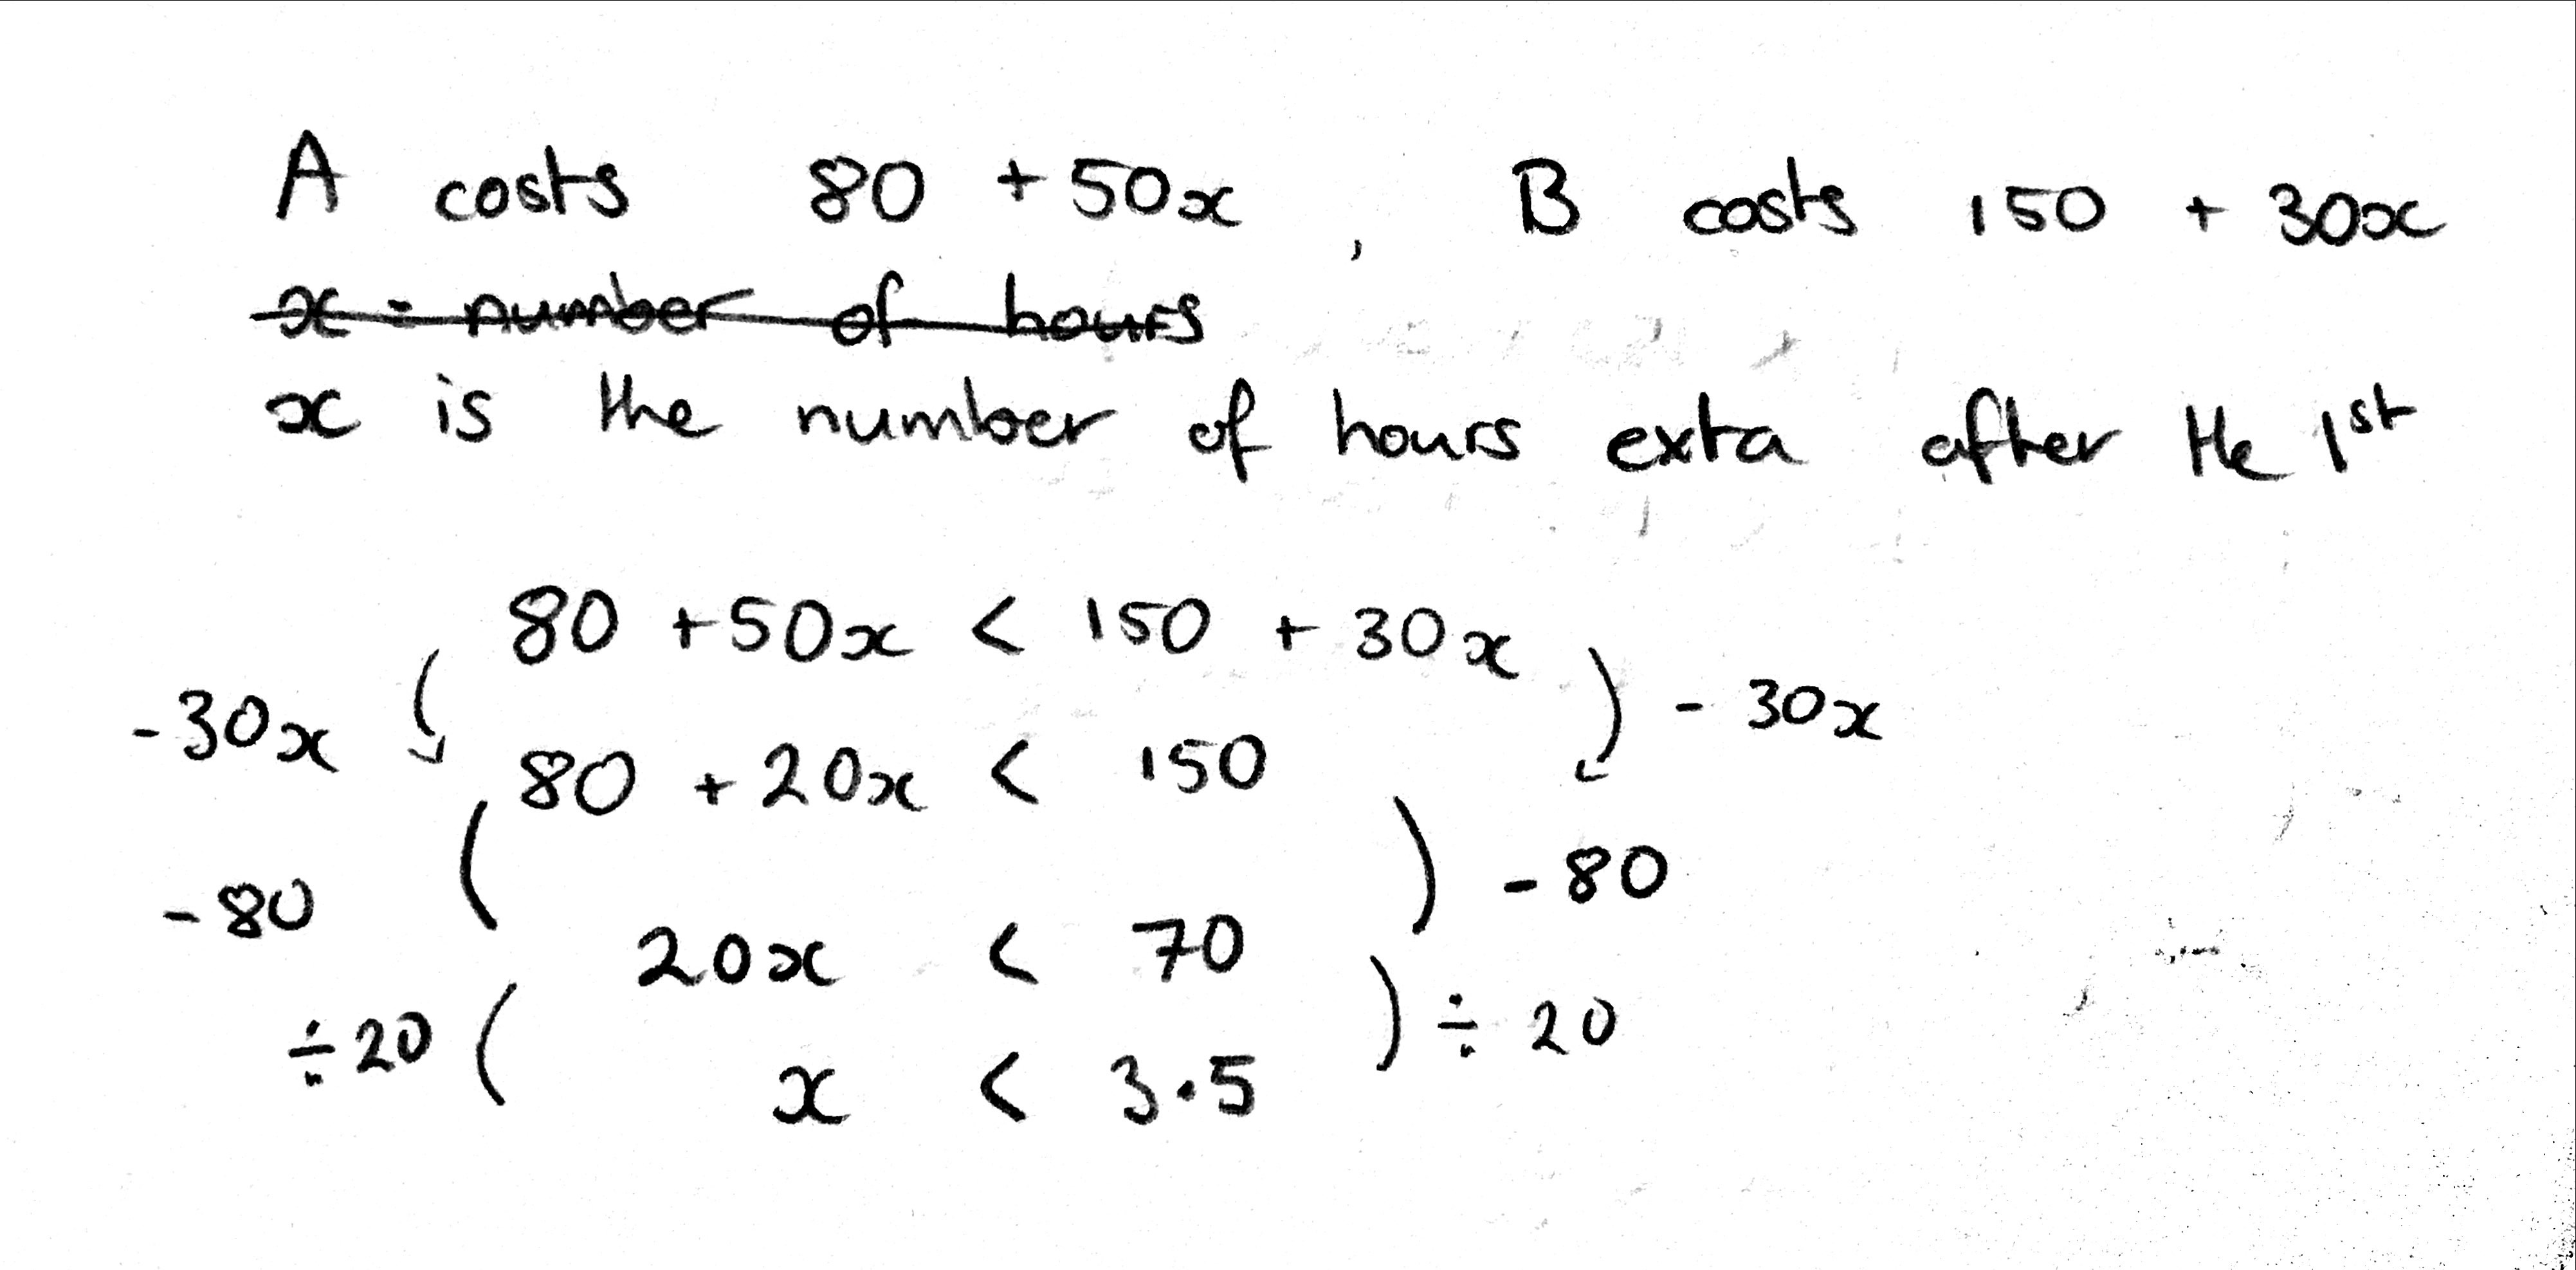 A costs 80 + 50x , B costs 150 + 30x
x = number of hours
x is the number of hours exta after the 1st
80 + 50x < 150 + 30x
-30x - 30x
80 + 20x < 150
-80 - 80
20x < 70
÷20 ÷ 20
x < 3.5